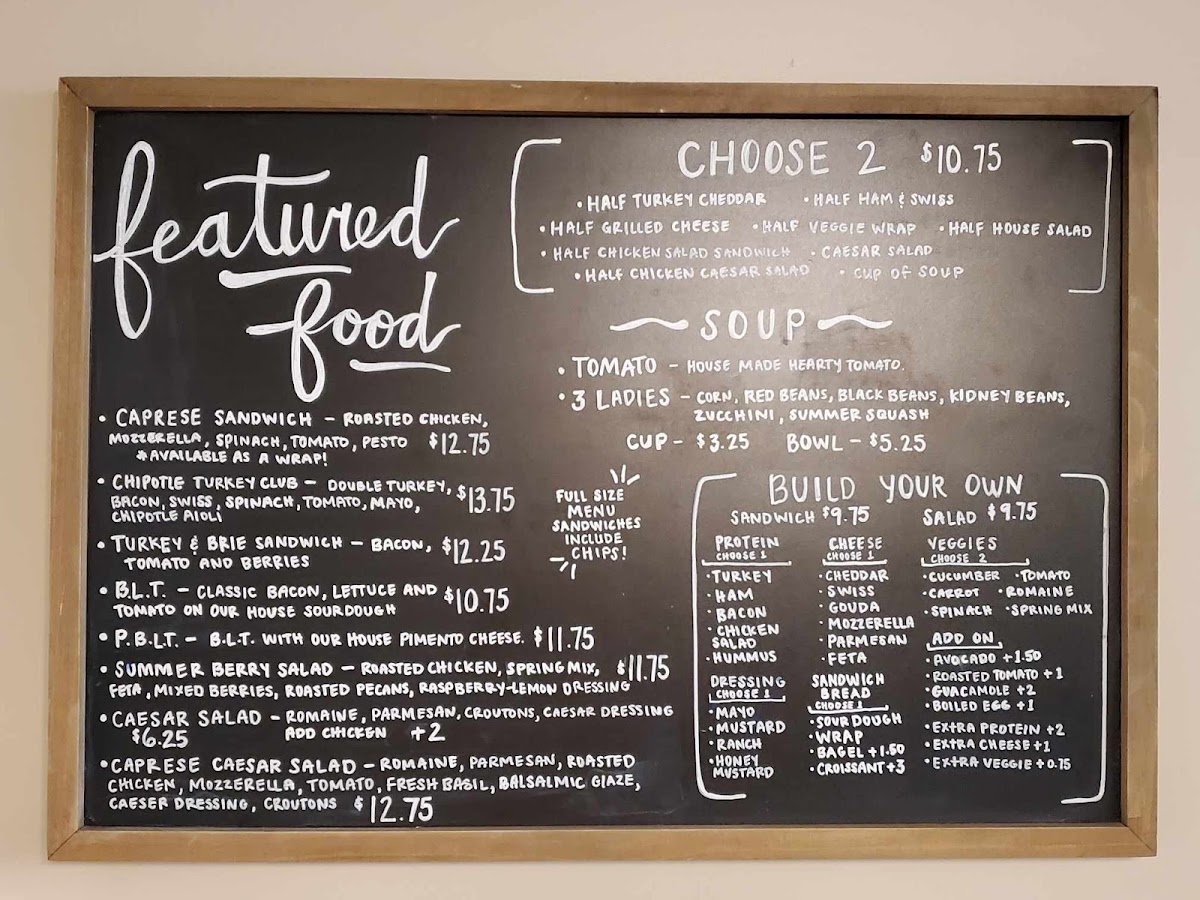 featured
food
• CAPRESE SANDWICH – ROASTED CHICKEN,
MOZZERELLA, SPINACH, TOMATO, PESTO $12.75
*AVAILABLE AS A WRAP!
• CHIPOTLE TURKEY CLUB – DOUBLE TURKEY, $13.75
BACON, SWISS, SPINACH, TOMATO, MAYO,
CHIPOTLE AIOLI
• TURKEY & BRIE SANDWICH – BACON, $12.25
TOMATO AND BERRIES
• B.L.T. – CLASSIC BACON, LETTUCE AND $10.75
TOMATO ON OUR HOUSE SOURDOUGH
• P.B.L.T. – B.L.T. WITH OUR HOUSE PIMENTO CHEESE. $11.75
• SUMMER BERRY SALAD – ROASTED CHICKEN, SPRING MIX, $11.75
FETA, MIXED BERRIES, ROASTED PECANS, RASPBERRY-LEMON DRESSING
• CAESAR SALAD – ROMAINE, PARMESAN, CROUTONS, CAESAR DRESSING
$6.25 ADD CHICKEN +2
• CAPRESE CAESAR SALAD – ROMAINE, PARMESAN, ROASTED
CHICKEN, MOZZERELLA, TOMATO, FRESH BASIL, BALSALMIC GLAZE,
CAESER DRESSING, CROUTONS $12.75
CHOOSE 2 $10.75
• HALF TURKEY CHEDDAR • HALF HAM & SWISS
• HALF GRILLED CHEESE • HALF VEGGIE WRAP • HALF HOUSE SALAD
• HALF CHICKEN SALAD SANDWICH • CAESAR SALAD
• HALF CHICKEN CAESAR SALAD • CUP OF SOUP
SOUP
• TOMATO – HOUSE MADE HEARTY TOMATO.
• 3 LADIES – CORN, RED BEANS, BLACK BEANS, KIDNEY BEANS,
ZUCCHINI, SUMMER SQUASH
CUP – $3.25 BOWL – $5.25
FULL SIZE
MENU
SANDWICHES
INCLUDE
CHIPS!
BUILD YOUR OWN
SANDWICH $9.75 SALAD $9.75
PROTEIN
CHOOSE 1
• TURKEY
• HAM
• BACON
• CHICKEN
SALAD
• HUMMUS
DRESSING
CHOOSE 1
• MAYO
• MUSTARD
• RANCH
• HONEY
MUSTARD
CHEESE
CHOOSE 1
• CHEDDAR
• SWISS
• GOUDA
• MOZZERELLA
• PARMESAN
• FETA
SANDWICH
BREAD
CHOOSE 1
• SOURDOUGH
• WRAP
• BAGEL +1.50
• CROISSANT +3
VEGGIES
CHOOSE 2
• CUCUMBER • TOMATO
• CARROT • ROMAINE
• SPINACH • SPRING MIX
ADD ON
• AVOCADO +1.50
• ROASTED TOMATO +1
• GUACAMOLE +2
• BOILED EGG +1
• EXTRA PROTEIN +2
• EXTRA CHEESE +1
• EXTRA VEGGIE +0.75